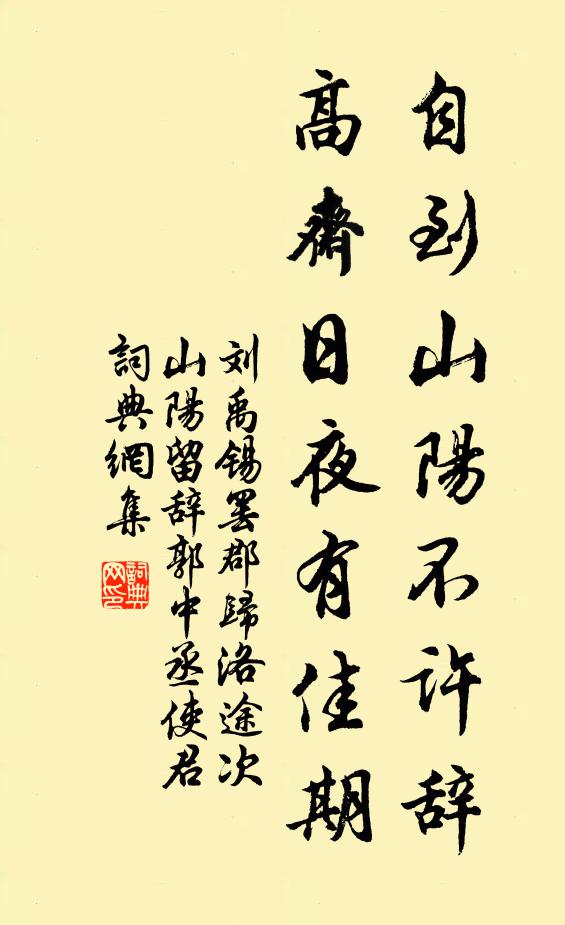 自到山陽不许辞
高齋日夜有佳期
刘禹锡罢郡歸洛途次
山陽留辞郭中丞使君
詞典網集
詞典
网印